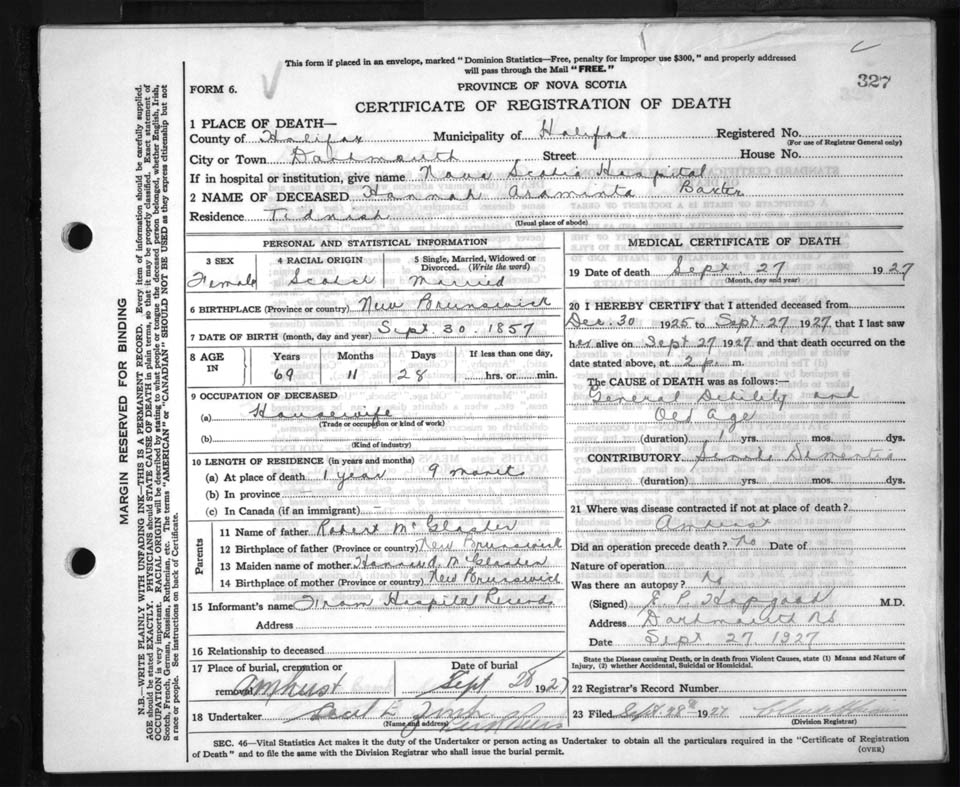 This form if placed in an envelope, marked "Dominion Statistics—Free, penalty for improper use $300," and properly addressed
will pass through the Mail "FREE."
327
FORM 6.
PROVINCE OF NOVA SCOTIA
CERTIFICATE OF REGISTRATION OF DEATH
1 PLACE OF DEATH—
County of Halifax Municipality of Halifax Registered No.
(For use of Registrar General only)
City or Town Dartmouth Street House No.
If in hospital or institution, give name Nova Scotia Hospital
2 NAME OF DECEASED Hannah Araminta Baxter
Residence Tidnish
(Usual place of abode)
PERSONAL AND STATISTICAL INFORMATION
3 SEX 4 RACIAL ORIGIN 5 Single, Married, Widowed or
Divorced. (Write the word)
Female Scotch Married
6 BIRTHPLACE (Province or country) New Brunswick
7 DATE OF BIRTH (month, day and year) Sept. 30. 1857
8 AGE IN Years Months Days If less than one day,
69 11 28 hrs. or min.
9 OCCUPATION OF DECEASED
(a) Housewife
(Trade or occupation or kind of work)
(b)
(Kind of industry)
10 LENGTH OF RESIDENCE (in years and months)
(a) At place of death 1 year 9 months
(b) In province
(c) In Canada (if an immigrant) —
Parents
11 Name of father Robert McGlashen
12 Birthplace of father (Province or country) New Brunswick
13 Maiden name of mother McGlashen
14 Birthplace of mother (Province or country) New Brunswick
15 Informant's name From Hospital Records
Address
16 Relationship to deceased
17 Place of burial, cremation or Date of burial
removal Amherst Sept 28 1927
18 Undertaker Cecil
(Name and address)
MEDICAL CERTIFICATE OF DEATH
19 Date of death Sept. 27 1927
(Month, day and year)
20 I HEREBY CERTIFY that I attended deceased from
Dec. 30 1925 to Sept. 27 1927 that I last saw
her alive on Sept 27 1927 and that death occurred on the
date stated above, at 2 p. m.
The CAUSE OF DEATH was as follows:—
General Debility and
Old Age
(duration) 1 yrs. mos. dys.
CONTRIBUTORY Senile Dementia
(duration) yrs. mos. dys.
21 Where was disease contracted if not at place of death?
Amherst
Did an operation precede death? No Date of
Nature of operation
Was there an autopsy? No
(Signed) E. P. Hopgood M.D.
Address Dartmouth NS
Date Sept 27 1927
State the Disease causing Death, or in death from Violent Causes, state (1) Means and Nature of
Injury, (2) whether Accidental, Suicidal or Homicidal.
22 Registrar's Record Number
23 Filed Sept. 28th 1927
(Division Registrar)
SEC. 46—Vital Statistics Act makes it the duty of the Undertaker or person acting as Undertaker to obtain all the particulars required in the "Certificate of Registration
of Death" and to file the same with the Division Registrar who shall issue the burial permit.
(OVER)
MARGIN RESERVED FOR BINDING
N.B.—WRITE PLAINLY WITH UNFADING INK—THIS IS A PERMANENT RECORD. Every item of information should be carefully supplied.
AGE should be stated EXACTLY. PHYSICIANS should STATE CAUSE OF DEATH in plain terms, so that it may be properly classified. Exact statement of
OCCUPATION is very important. RACIAL ORIGIN will be described by stating to what people or tongue the deceased person belonged, whether English, Irish,
Scotch, French, German, Russian, Ruthenian, etc. The terms "AMERICAN" or "CANADIAN" SHOULD NOT BE USED as they express citizenship but not
a race or people. See instructions on back of Certificate.